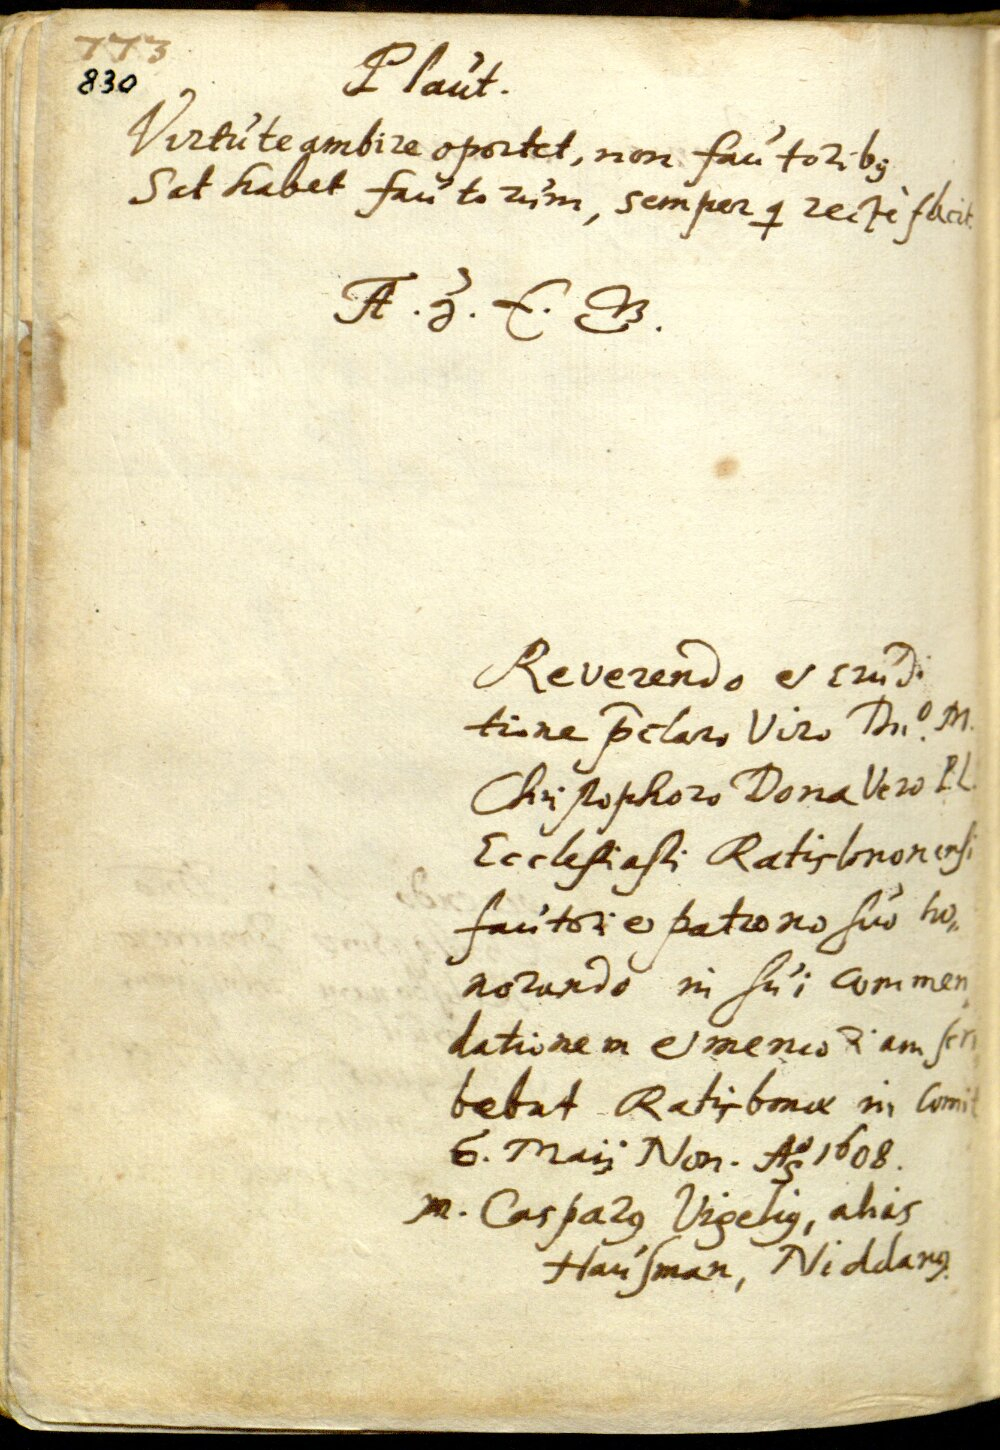 773
830
Plaut.
Virtute ambire oportet, non fautoribꝰ
Sat habet fautorum, semper q rectè facit.
A. Z. C. B.
Reverendo et erudi
tione p̄claro Viro Dn̄o. M.
Christophoro Donavero P.L.
Ecclesiasti Ratisbonensi
fautori et patrono suo ho„
norando in sui commen
dationem et memoriam scri
bebat Ratisbonæ in Comit
6. Maij Non. Aō 1608.
M. Casparꝰ Vigeliꝰ, alias
Hausman, Niddanꝰ.